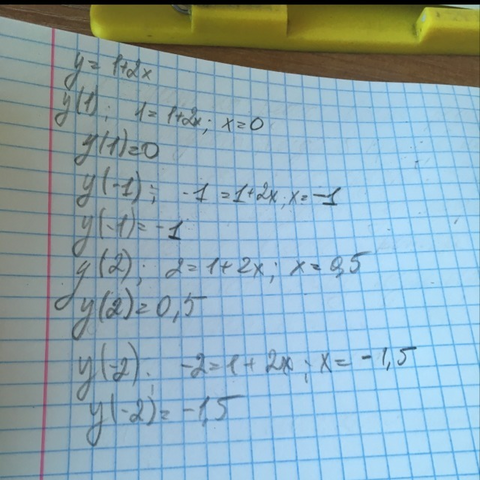 y = 1+2x
y(1); 1 = 1+2x; x=0
y(1)=0
y(-1); -1 = 1+2x; x=-1
y(-1)=-1
y(2); 2=1+2x; x=0,5
y(2)=0,5
y(-2); -2=1+2x; x=-1,5
y(-2)=-1,5